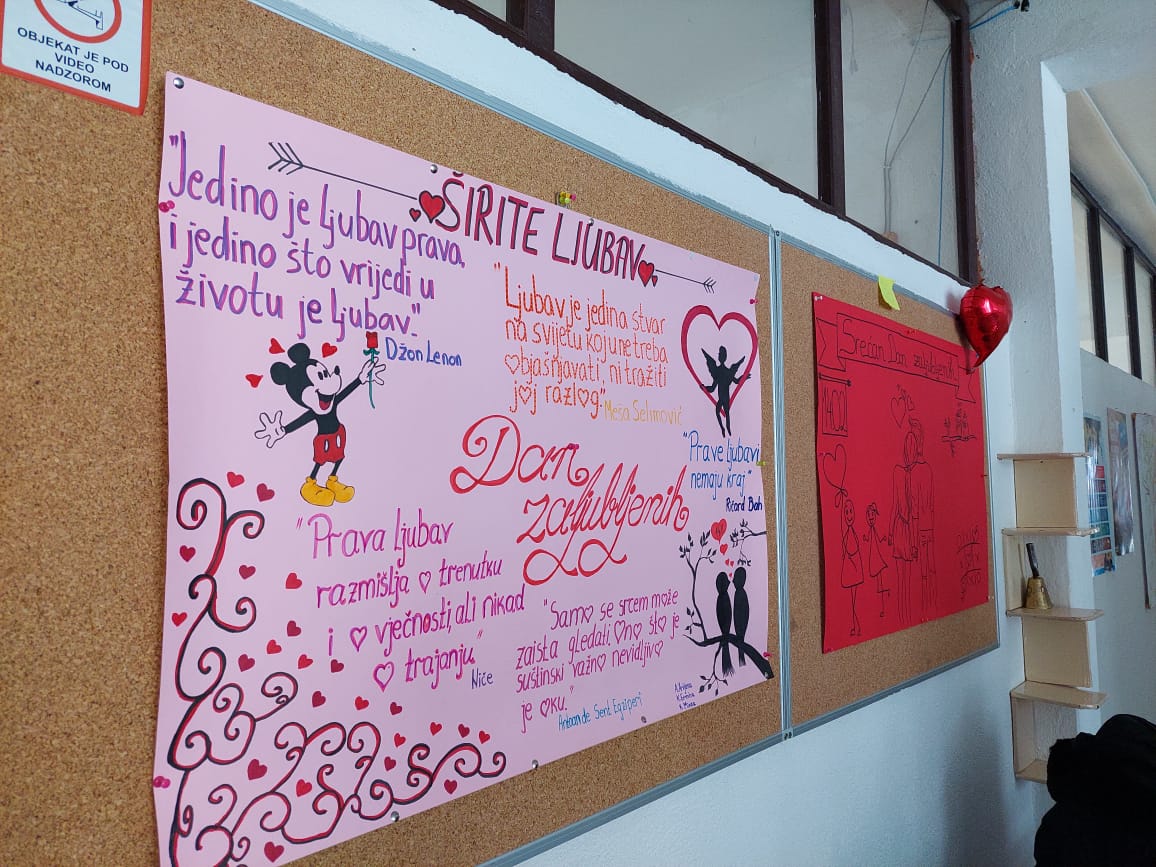 OBJEKAT JE POD
VIDEO
NADZOROM
ŠIRITE LJUBAV
"Jedino je ljubav prava,
i jedino što vrijedi u
životu je ljubav."
Džon Lenon
"Ljubav je jedina stvar
na svijetu koju ne treba
objašnjavati, ni tražiti
joj razlog."
Meša Selimović
Dan
zaljubljenih
"Prave ljubavi
nemaju kraj"
Ričard Bah
"Prava ljubav
razmišlja o trenutku
i o vječnosti, ali nikad
o trajanju."
Niče
"Samo se srcem može
zaista gledati. Ono što je
suštinski važno nevidljivo
je oku."
Antoan de Sent Egziperi
Srećan Dan zaljubljenih